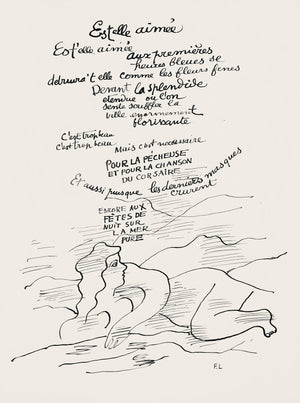 Est elle aimée
Est'elle aimée
aux premières
heures bleues se
detruira't elle comme les fleurs feues
Devant la splendide
étendue où l'on
sente souffler la
ville énormément
florissante
C'est trop beau
c'est trop beau
Mais c'est nécessaire
POUR LA PECHEUSE
ET POUR LA CHANSON
DU CORSAIRE
Et aussi puisque les derniers masques
crurent
ENCORE AUX
FÊTES DE
NUIT SUR
LA MER
PURE
F.L